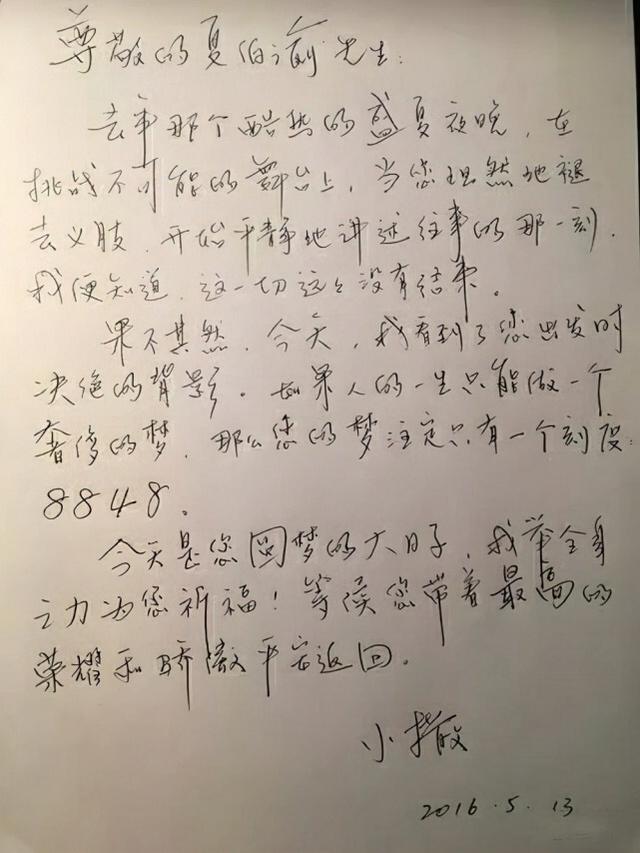 尊敬的夏伯渝先生：
去年那个酷热的盛夏夜晚，在
挑战不可能的舞台上，当您坦然地褪
去义肢，开始平静地讲述往事的那一刻，
我便知道，这一切远远没有结束。
果不其然，今天，我看到了您出发时
决绝的背影。如果人的一生只能做一个
奢侈的梦，那么您的梦注定只有一个刻度：
8848。
今天是您圆梦的大日子，我举全身
之力为您祈福！等候您带着最高的
荣耀和骄傲平安返回。
小撒
2016.5.13